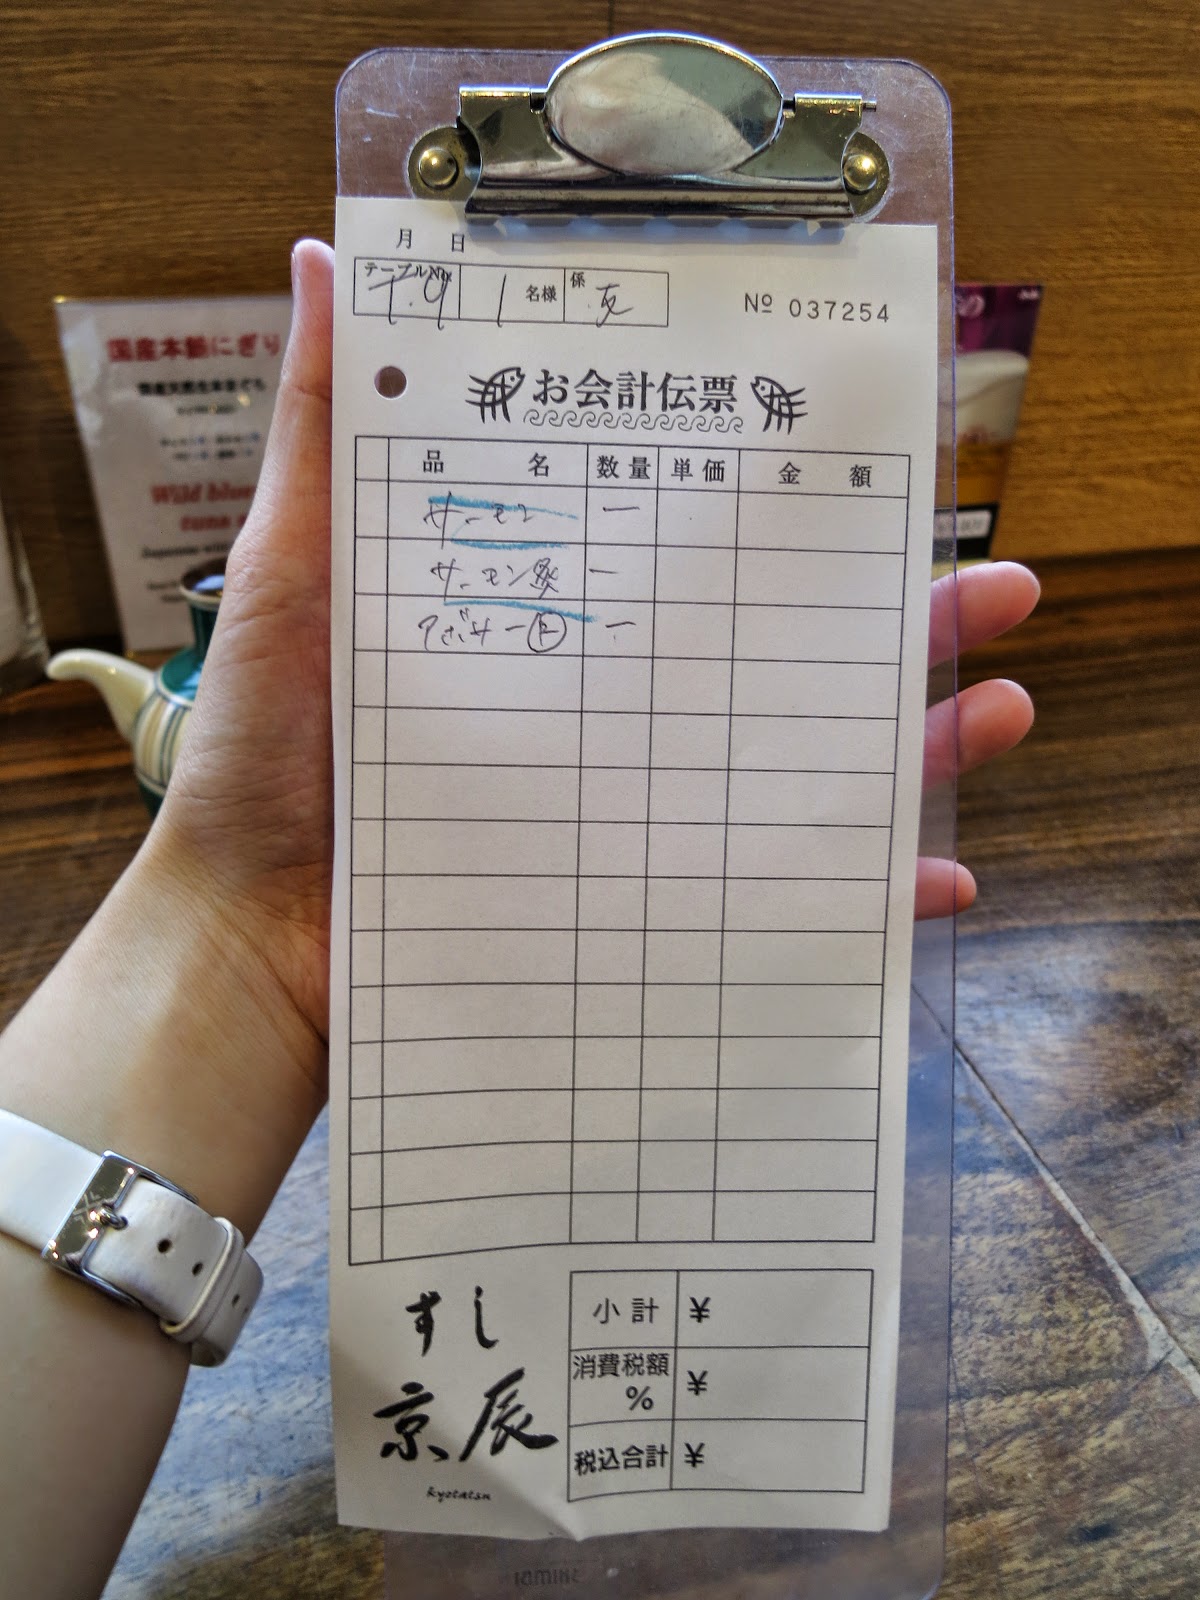 月 日
テーブルNo. T.9 1 名様 係 友
№ 037254
お会計伝票
品 名 数量 単価 金 額
サーモン 一
サーモン炙 一
アボサー 一
小計 ¥
消費税額 % ¥
税込合計 ¥
すし
京辰
kyotatsu
国産本鮪にぎり
国産天然生本まぐろ
Wild blue
tuna